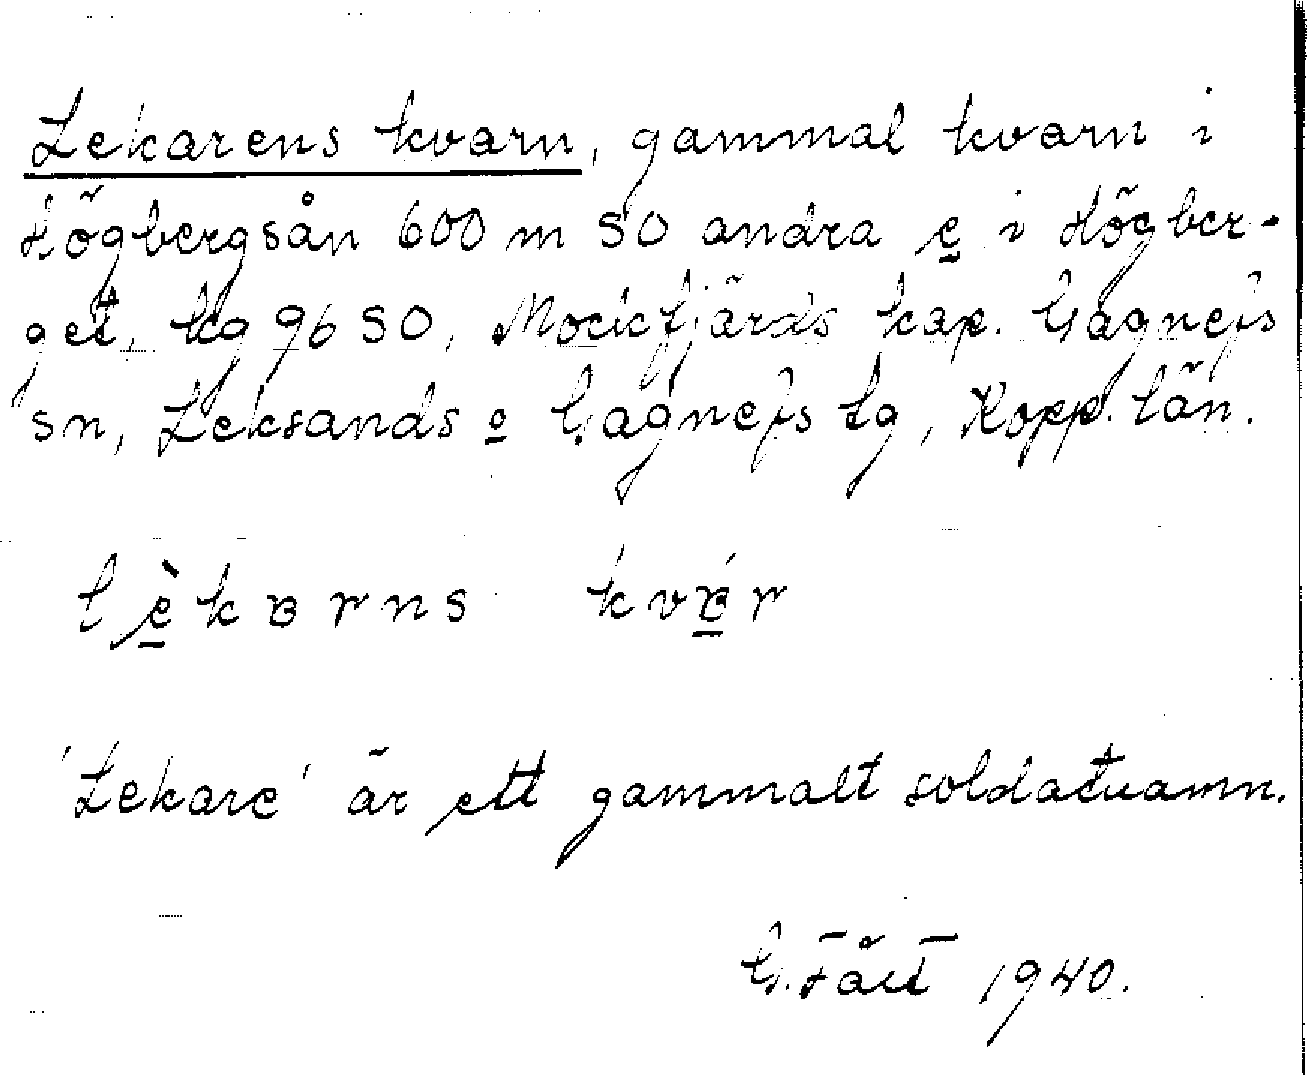 Lekarens kvarn, gammal kvarn i
Högbergsån 600 m SO andra e i Högber-
get, kg 96 SO, Mockfjärds kap. Gagnefs
sn, Leksands o Gagnefs tg, Kopp. län.
lèkɐrns kvɐ́r
'Lekare' är ett gammalt soldatnamn.
G. Fält 1940.